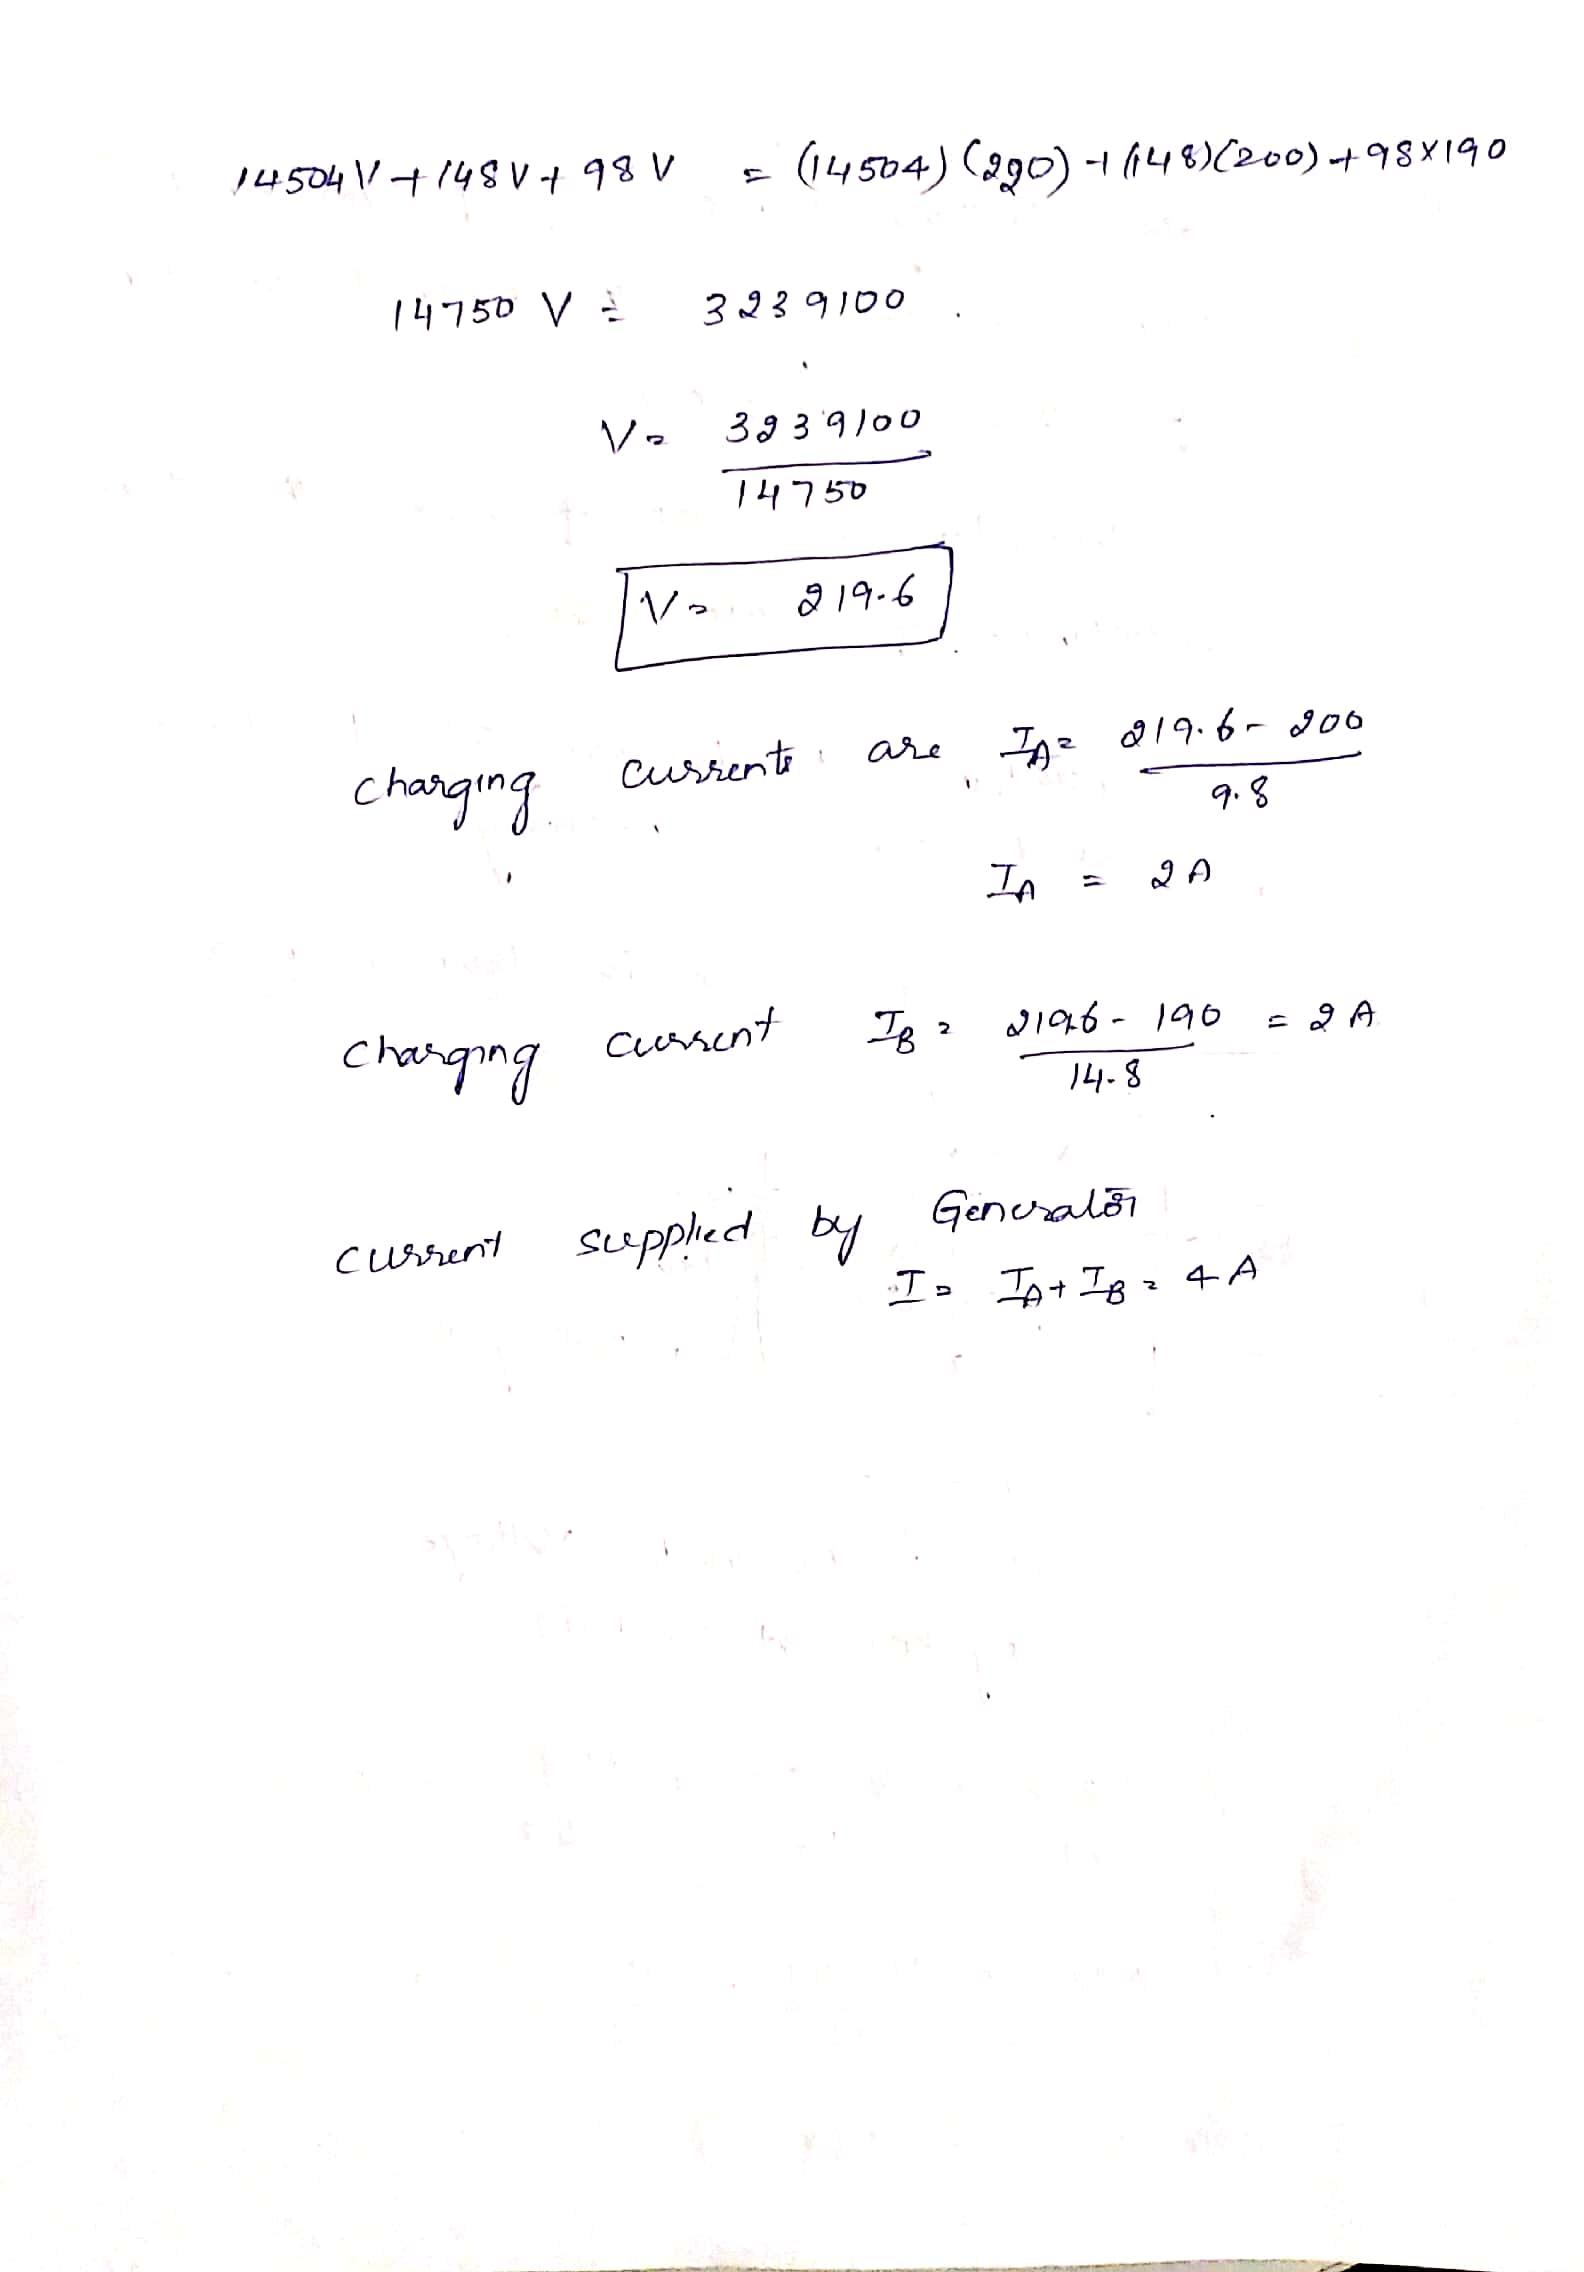 14504V + 148V + 98V = (14504)(220) + (148)(200) + 98×190
14750 V = 3239100
V = 3239100
14750
V = 219.6
charging currents are I_A = 219.6 - 200
9.8
I_A = 2A
charging current I_B = 219.6 - 190 = 2A
14.8
current supplied by Generator
I = I_A + I_B = 4A